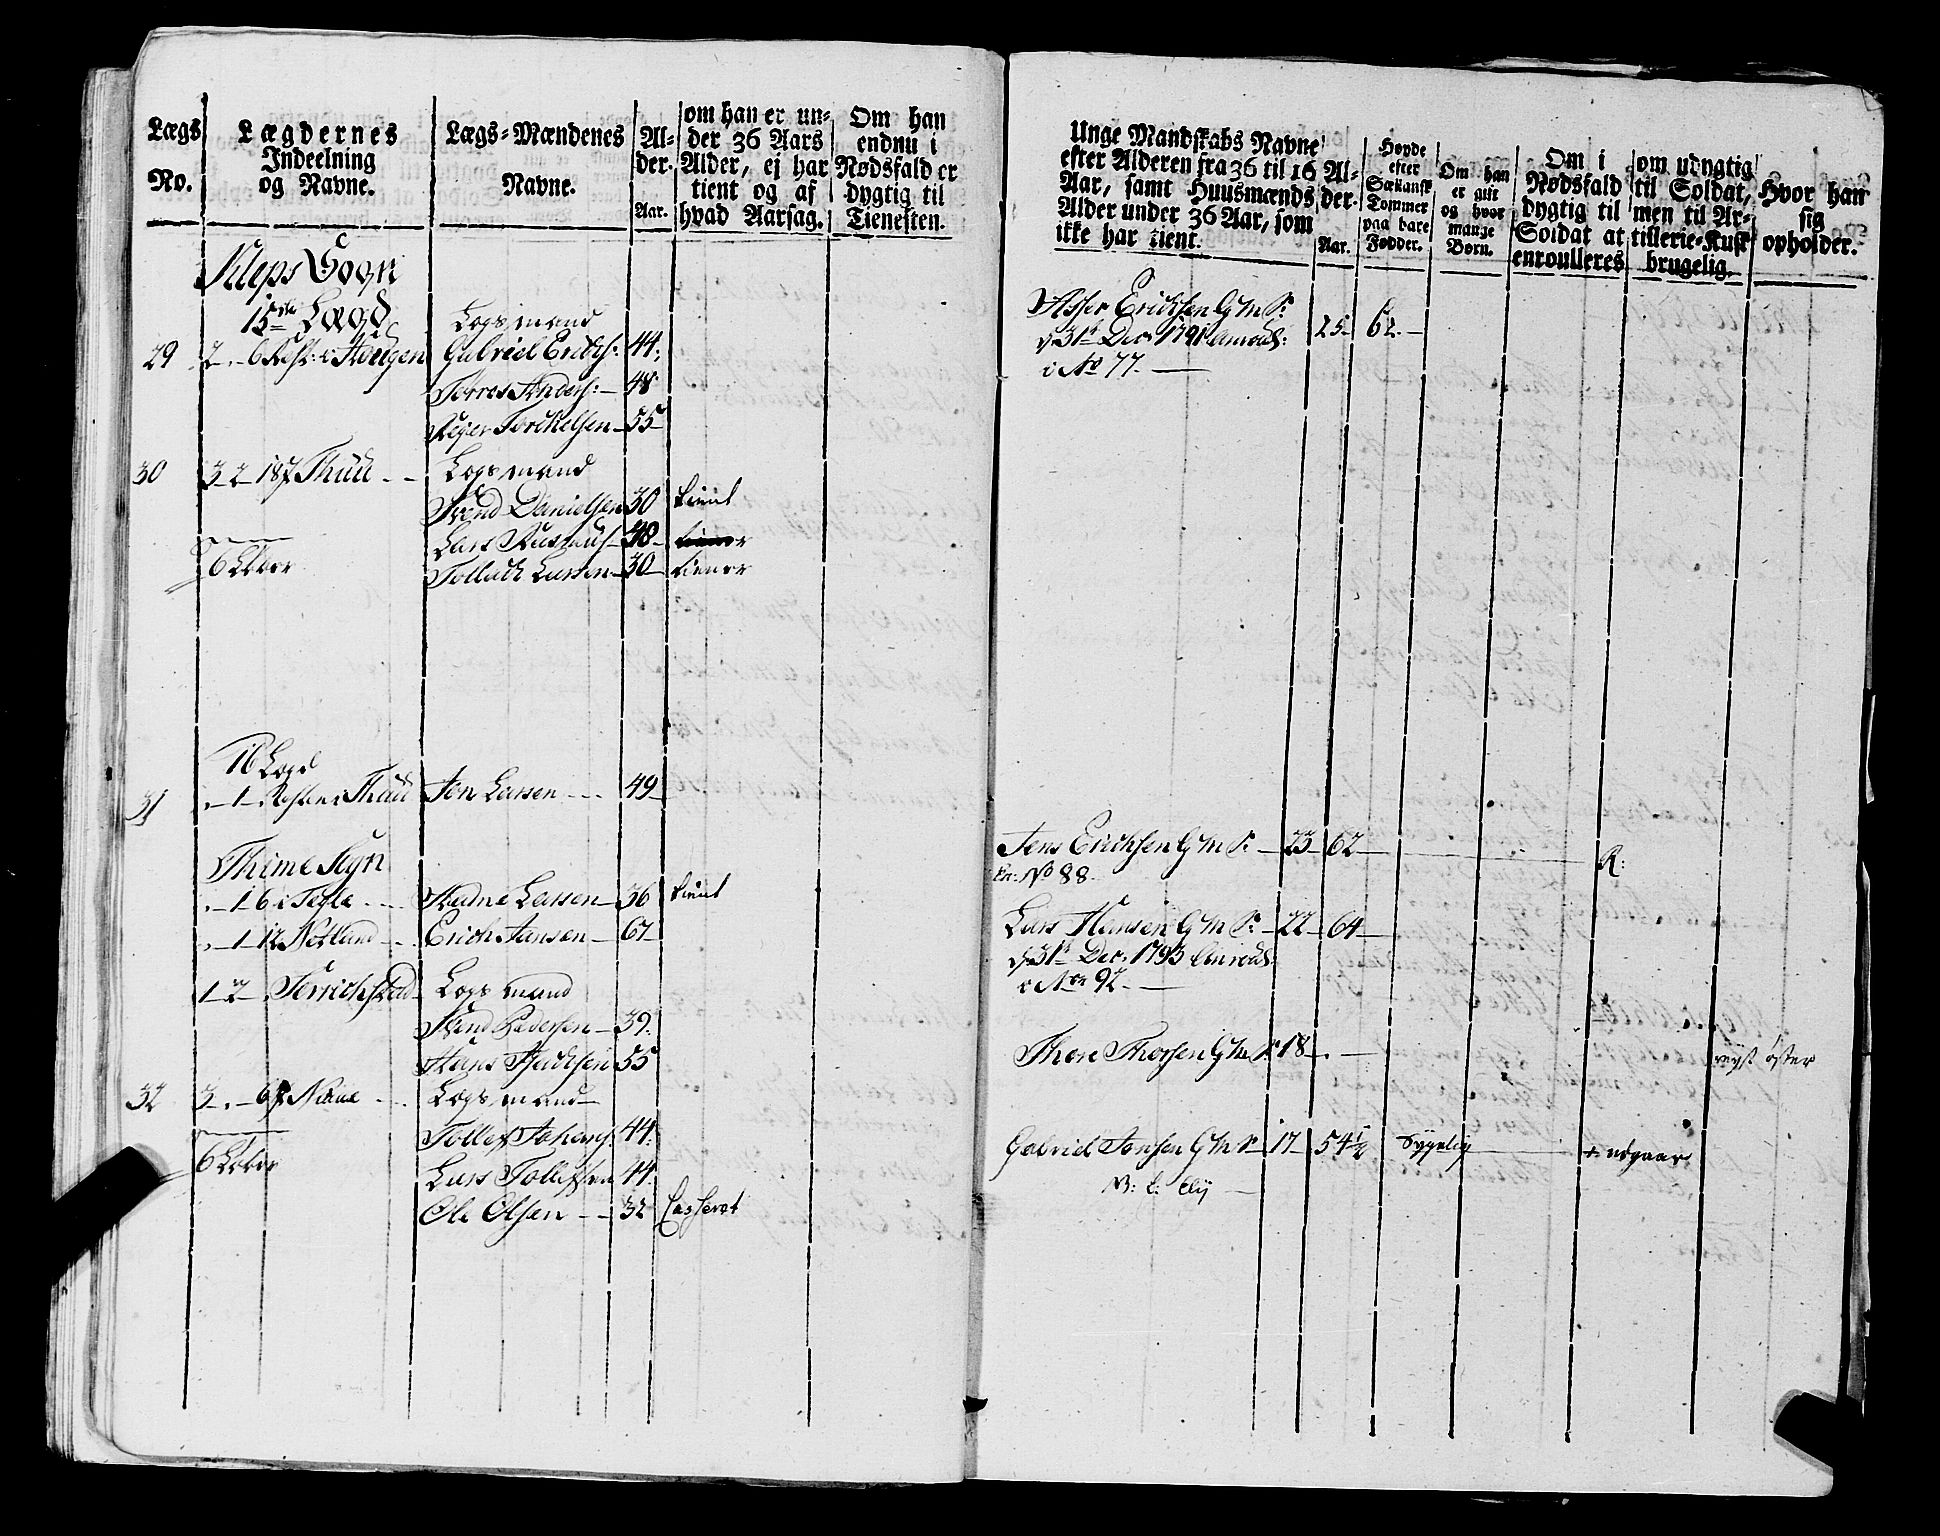 Lægs No.
Lægdernes Indeelning og Navne.
Lægs-Mændenes Navne.
Al-der. Aar.
om han er un-der 36 Aars Alder, ej har tient og af hvad Aarsag.
Om han endnu i Nødsfald er dygtig til Tienesten.
Kleps Sogn
15de Lægd
Logsmand
29 2 . - 6
Gabriel Erichs: 44.
Torres Anders: - 48
Torckelsen - 55
30 3 2 187 Thuu - - Logsmand
Svend Danielsen 30 tient
Lars 48 tiener
6 Lodder
Tollach Larsen - 30 tiener
16 Lægd
31 . - 1 - Thuu Jon Larsen - - - 49
Thime Sogn
. - 1 - 6 i Larsen - 36 tient
. - 1 - 12 Netland - - Erich Jansen - 67
1 - 2 - Logsmand
Svend Pedersen - 39.
Hans 55
32 3 . - 67 Logsmand -
Tollef Johans: 44.
6 Lodder
Lars Tollefsen 44.
Ole Olsen - - 32 Casseret
Unge Mandskabs Navne efter Alderen fra 36 til 16 Aar, samt Huusmænds Alder under 36 Aar, som ikke har tient.
Al-der. Aar.
Høyde efter Sællansk Tommer paa bare Fødder.
Om han er gift og hvor mange Børn.
Om i Nødsfald dygtig til Soldat at enroulleres
om udygtig til Soldat, men til Ar-tillerie-Kusk brugelig.
Hvor han sig opholder.
Asser Erichsen G M S: 25 - 62. -
d 31t Dec: 1791
i No 77. -
Jens Erichsen G M S. - 23 - 62 - R:
En: No 88.
Lars Hansen G M S: - 22 - 64 -
d 31t Dec: 1793
i No 92. -
Thore Thorsen G M S 18 - . - reyst øster
Gabriel Jonsen G M S - 17 - 54 1/2 Sygelig + udgaar